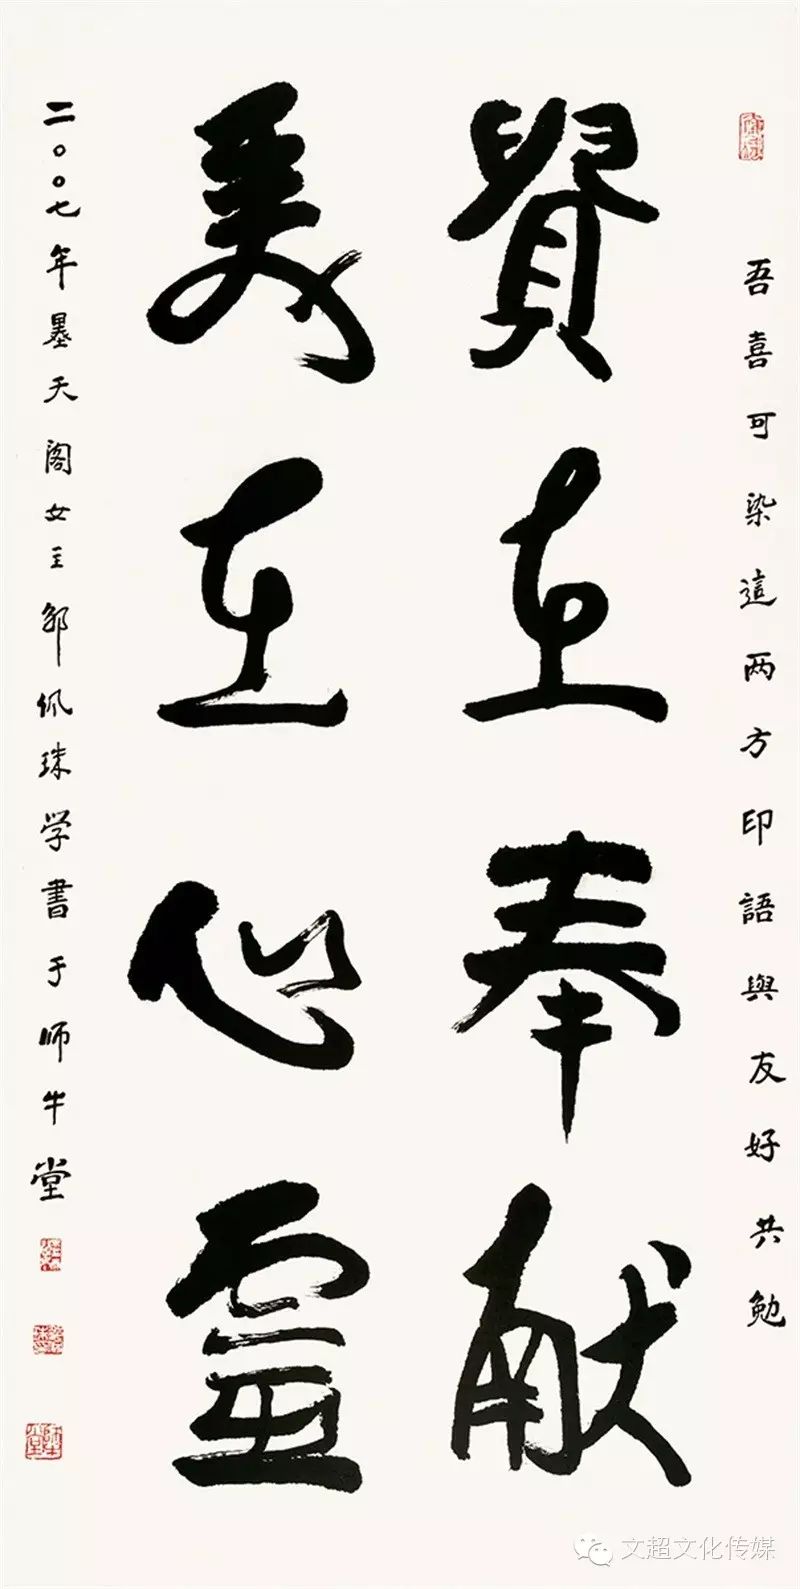 吾喜可染這两方印語與友好共勉
貴在奉献
美在心霊
二〇〇七年墨天阁女主邹佩珠学書于师牛堂
文超文化传媒